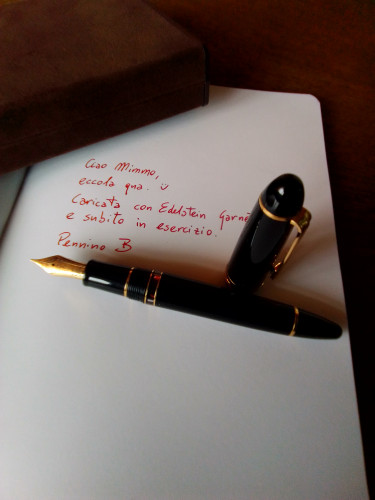 Ciao Mimmo,
eccola qua.
Caricata con Edelstein
e subito in esercizio.
Pennino B